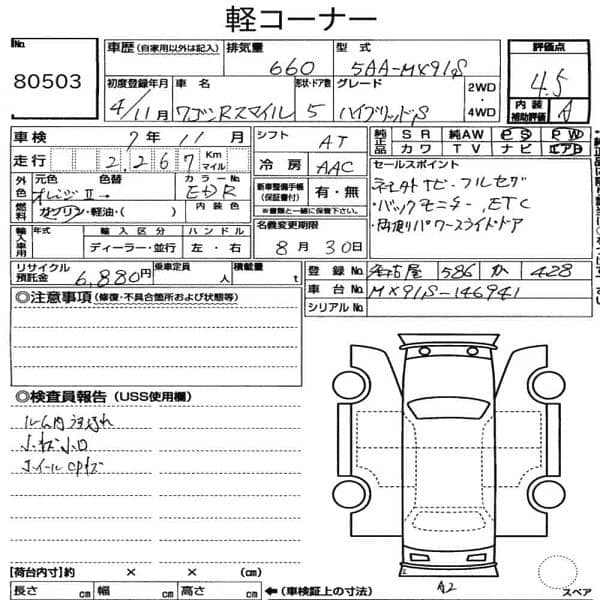 軽コーナー
No.
80503
車歴(自家用以外は記入)
排気量
660
型式
5AA-MX91S
評価点
4.5
内装
補助評価
A
初度登録年月
4/11月
車名
ワゴンRスマイル
形状・ドア数
5
グレード
ハイブリッドS
2WD
・
4WD
車検
7年 11月
シフト
AT
純正品
SR 純AW PS PW
カワ TV ナビ エアB
走行
2,267
Km
マイル
冷房
AAC
セールスポイント
・バックモニター, ETC
・両側パワースライドドア
外色
元色 色替
オレンジⅡ→
カラーNo.
燃料
ガソリン・軽油・( )
内装色
新車整備手帳
(保証書付)
有・無
※書類と一緒に保管して下さい。
輸入車用
年式
輸入区分
ディーラー・並行
ハンドル
左・右
名義変更期限
8月30日
リサイクル
預託金
6,880円
乗車定員
人
積載量
t
登録No.
名古屋 586 か 428
車台No.
MX91S-146941
シリアルNo.
◎注意事項(修復・不具合箇所および状態等)
◎検査員報告(USS使用欄)
小キズ小凹
【荷台内寸】約 × × (cm)
長さ cm 幅 cm 高さ cm
←(車検証上の寸法)
A2
スペア